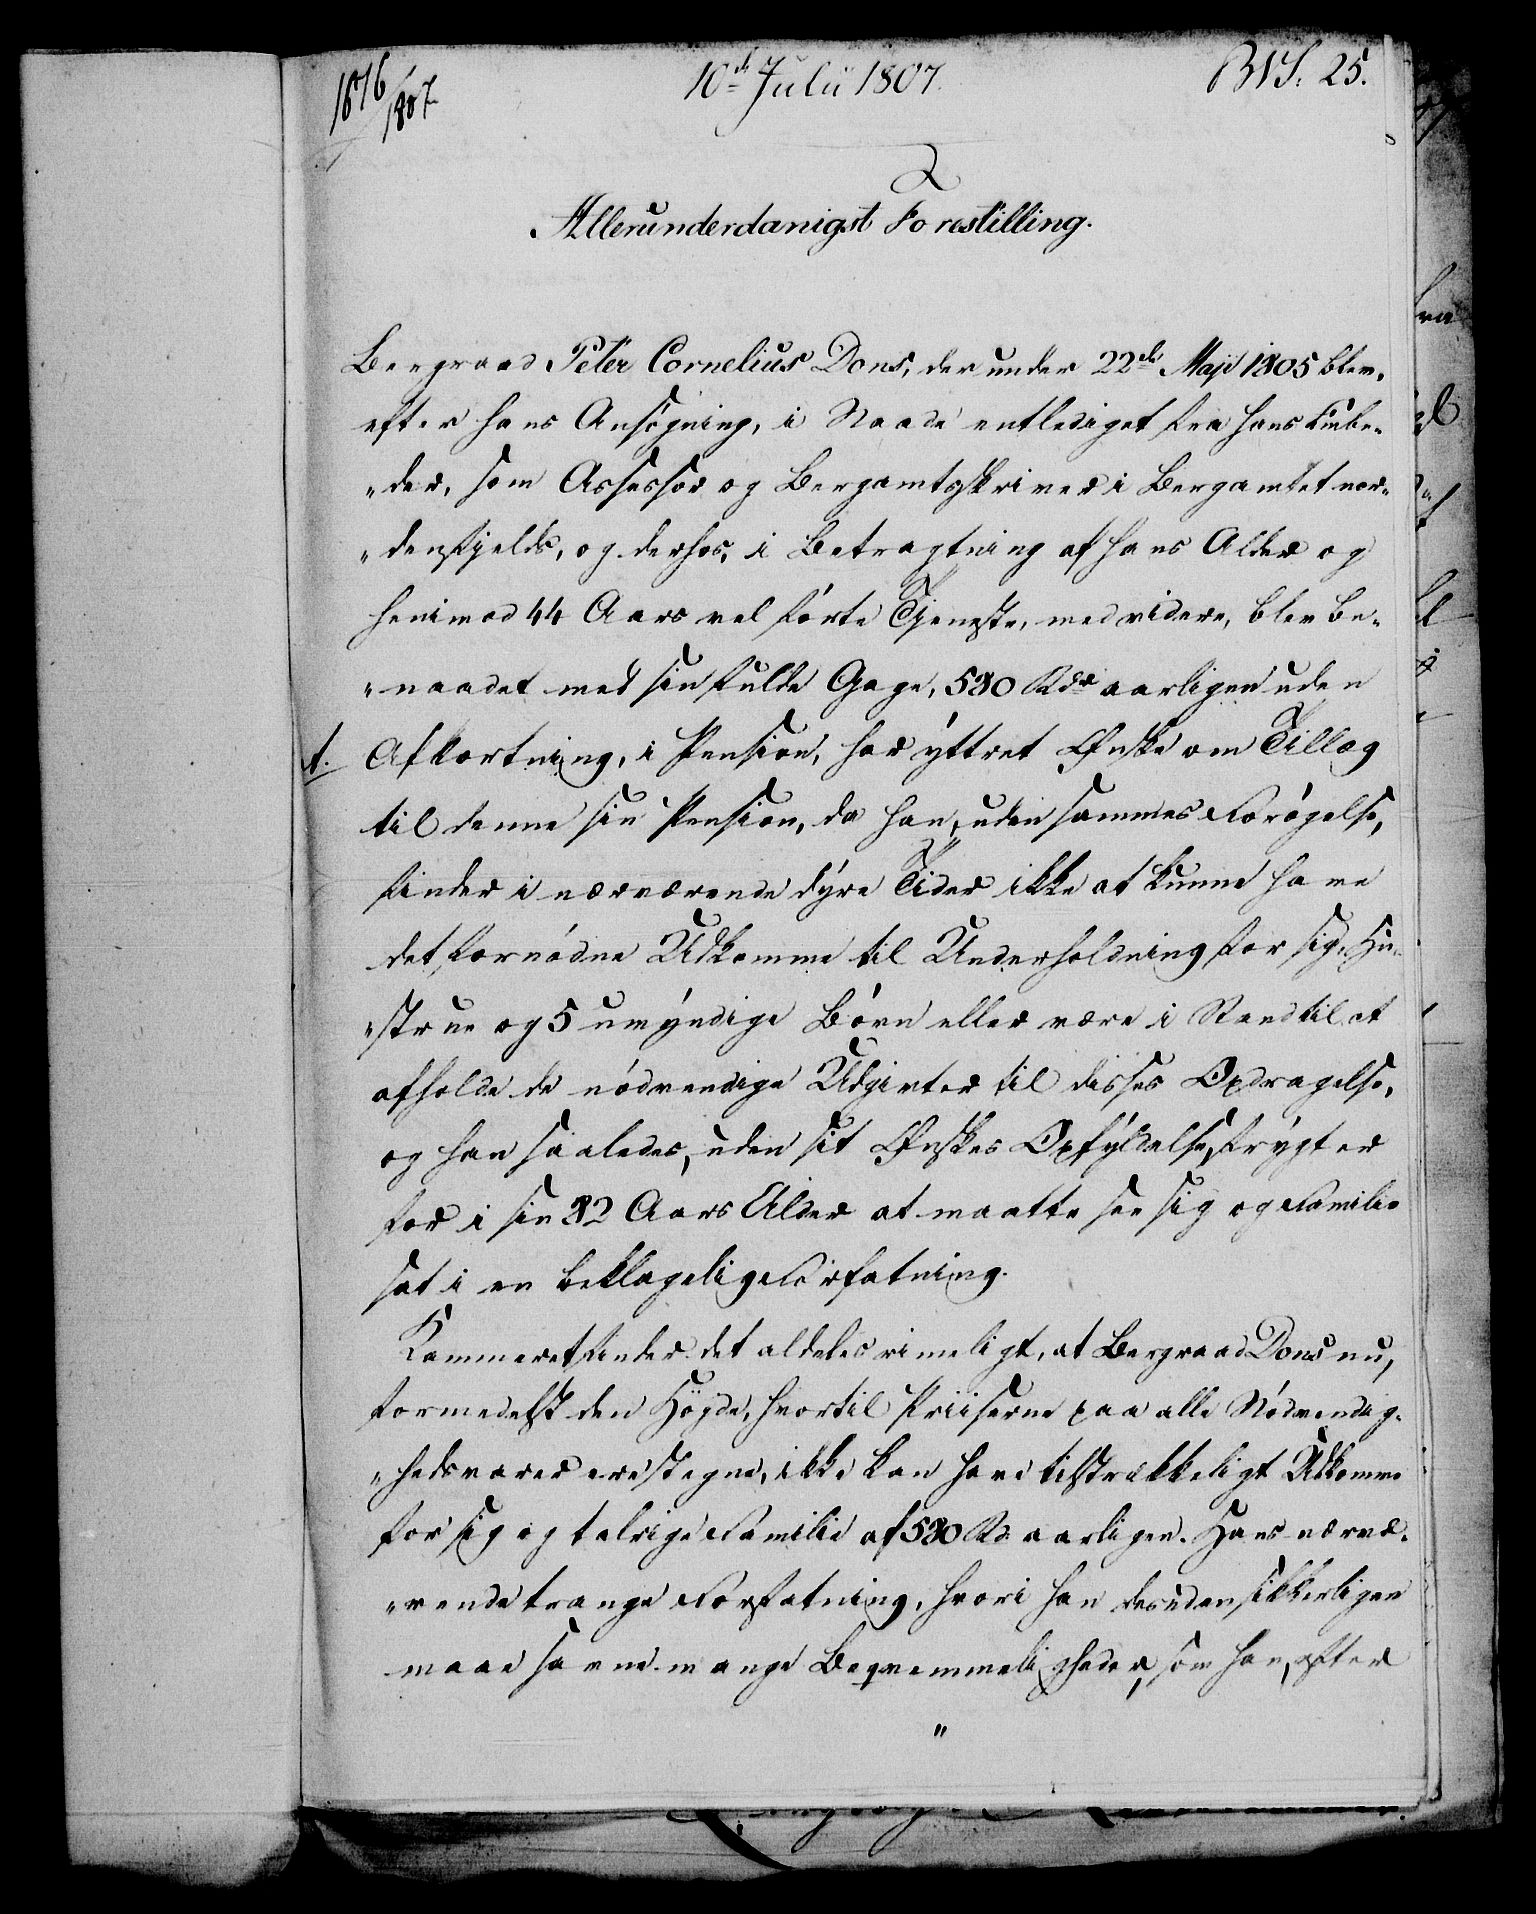 1676/1807
10de Julii 1807.
B N S: 25.
Allerunderdanigst Forestilling.
Bergraad Peter Cornelius Dons, der under 22de Maji 1805 blev,
efter hans Ansøgning, i Naade entlediget fra hans Embe„
„der, som Assessor og Bergamtsskriver i Bergamtet nor„
„denfjelds, og derhos, i Betragtning af hans Alder og
henimod 44 Aars vel førte Tjeneste, med videre, blev be„
„naadet med sin fulde Gage, 530 Rdr aarligen uden
Afkortning, i Pension, har yttret Ønske om Tillæg
til denne sin Pension, da han, uden sammes Forøgelse,
finder i nærværende dyre Tider ikke at kunne have
det fornødne Udkomme til Underholdning for sig, Hu„
„strue og 5 umyndige Børn eller være i Stand til at
afholde de nødvendige Udgivter til disses Opdragelse,
og han saaledes, uden sit Ønskes Opfyldelse, frygter
for i sin 82 Aars Alder at maatte see sig og Familie
sat i en beklagelig Forfatning.
Kammeret finder det aldeles rimeligt, at Bergraad Dons nu,
formedelst den Højde, hvortil Priiserne paa alle Nødvendig„
„hedsvarer ere stegne, ikke kan have tilstrækkeligt Udkomme
for sig og talrige Familie af 530 Rd aarligen. Hans nærvæ„
„rende trange Forfatning, hvori han desuden sikkerligen
maae savne mange Beqvemmeligheder, som han, efter
„